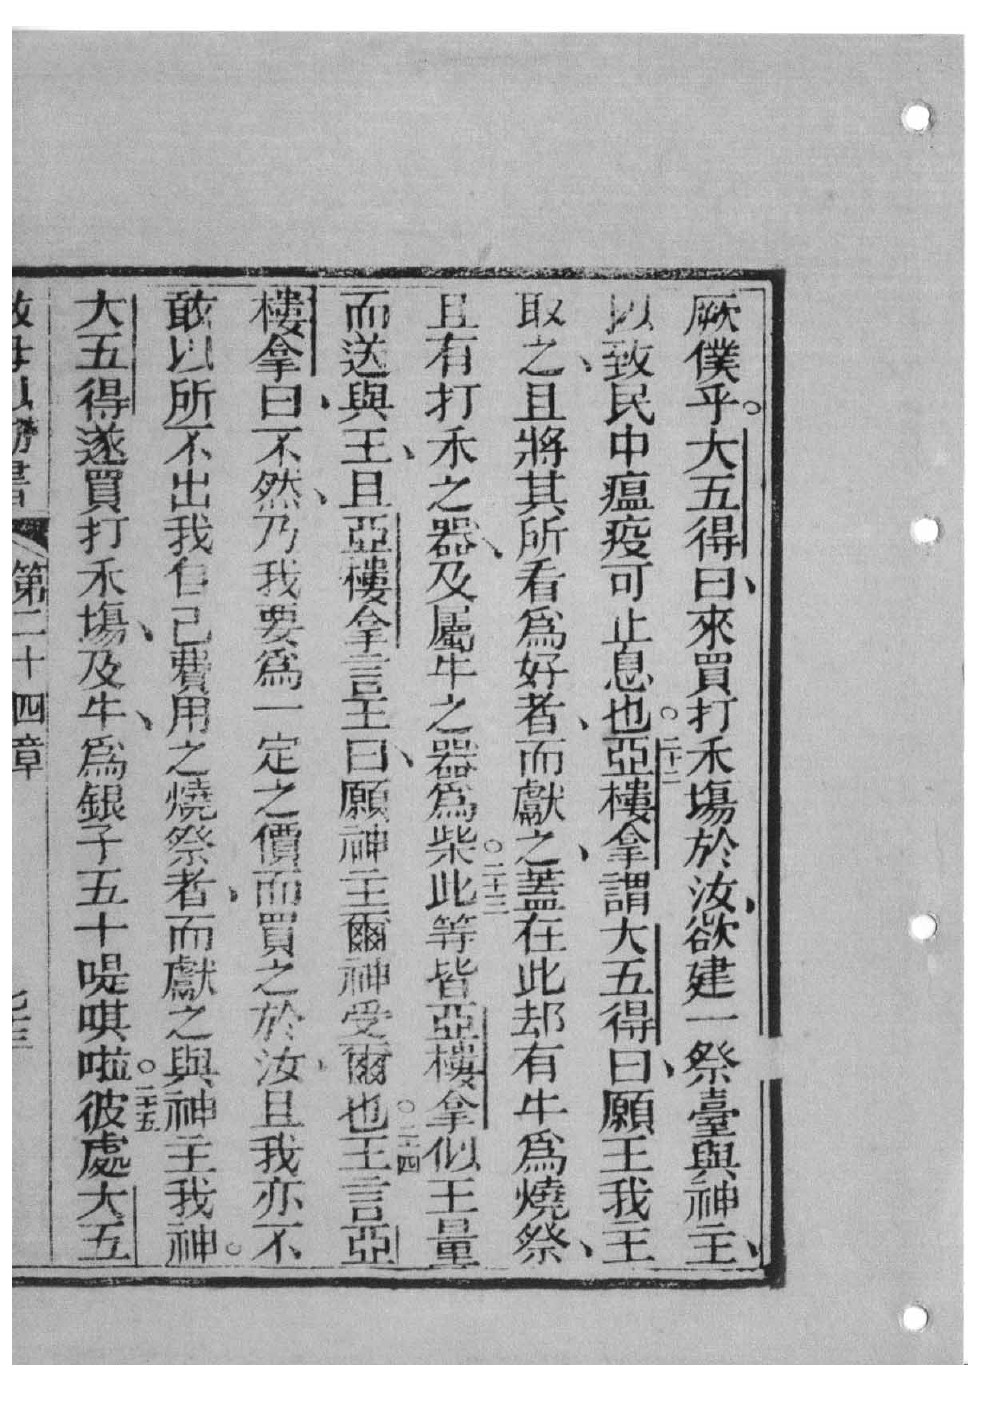 厥僕乎。大五得曰、來買打禾塲於汝、欲建一祭臺與神主、
以致民中瘟疫可止息也。二十二亞樓拿謂大五得曰、願王我主
取之、且將其所看爲好者、而獻之、蓋在此却有牛爲燒祭、
且有打禾之器、及屬牛之器爲柴。二十三此等皆亞樓拿似王量
而送與王、且亞樓拿言王曰、願神主爾神受爾也。二十四王言亞
樓拿曰、不然、乃我要爲一定之價而買之於汝、且我亦不
敢以所不出我自己費用之燒祭者、而獻之與神主我神。
大五得遂買打禾塲、及牛、爲銀子五十㖷唭啦。二十五彼處大五
書 第二十四章